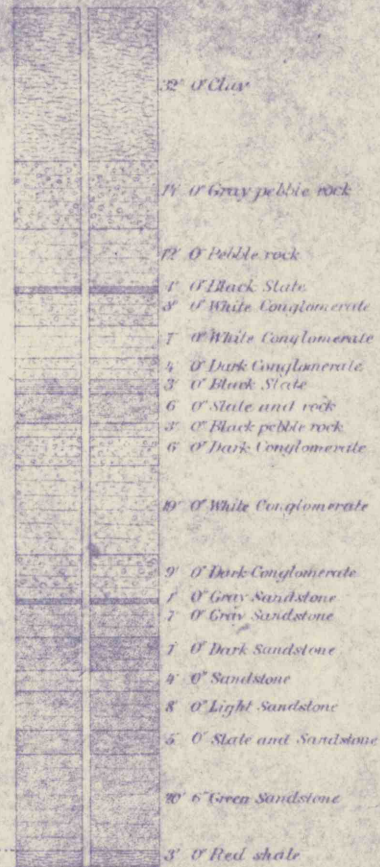 32' 0" Clay
14' 0" Gray pebble rock
12' 0" Pebble rock
1' 0" Black Slate
8' 0" White Conglomerate
7' 0" White Conglomerate
4' 0" Dark Conglomerate
3' 0" Black Slate
6' 0" Slate and rock
3' 0" Black pebble rock
6' 0" Dark Conglomerate
19' 0" White Conglomerate
9' 0" Dark Conglomerate
1' 0" Gray Sandstone
7' 0" Gray Sandstone
7' 0" Dark Sandstone
4' 0" Sandstone
8' 0" Light Sandstone
5' 0" Slate and Sandstone
20' 6" Green Sandstone
3' 0" Red shale